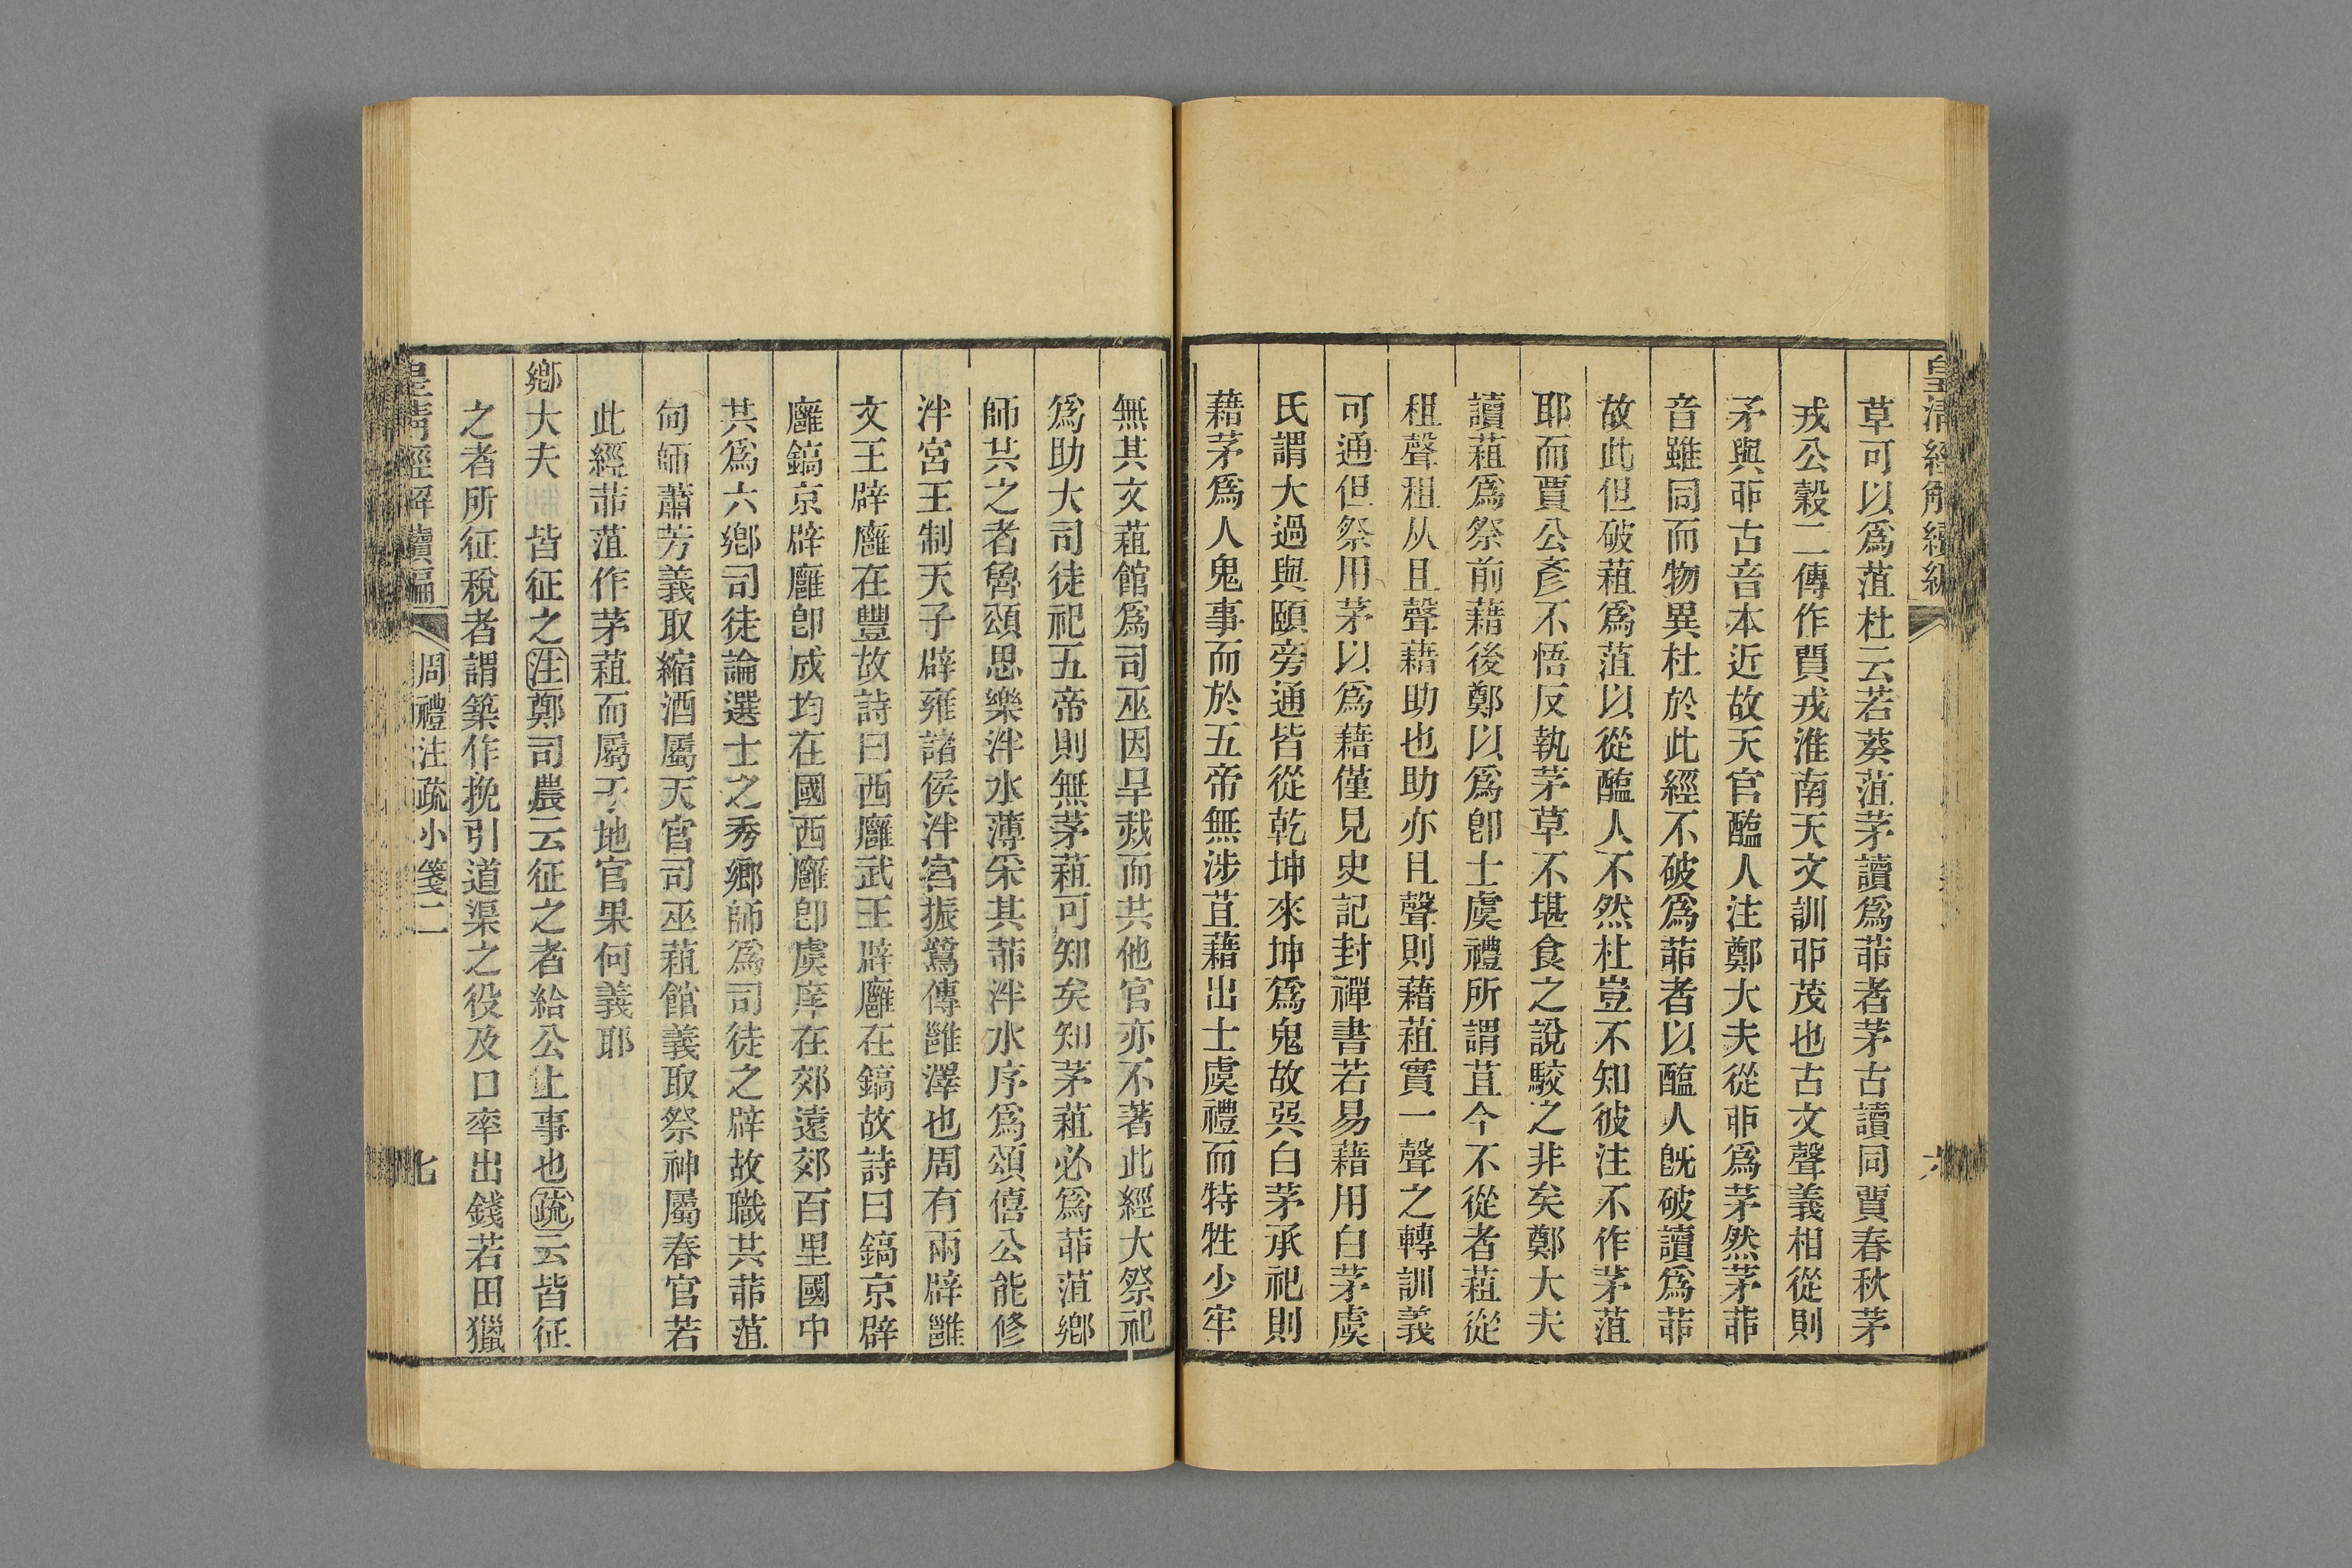 皇清經解續編
草可以爲菹杜云若葵菹茅讀爲茆者茅古讀同貿春秋茅
戎公穀二傳作貿戎淮南天文訓丣茂也古文聲義相從則
矛與丣古音本近故天官醢人注鄭大夫從丣爲茅然茅茆
音雖同而物異杜於此經不破爲茆者以醢人旣破讀爲茆
故此但破蒩爲菹以從醢人不然杜豈不知彼注不作茅菹
耶而賈公彥不悟反執茅草不堪食之說駁之非矣鄭大夫
讀蒩爲祭前藉後鄭以爲卽士虞禮所謂苴今不從者蒩從
租聲租从且聲藉助也助亦且聲則藉蒩實一聲之轉訓義
可通但祭用茅以爲藉僅見史記封禪書若易藉用白茅虞
氏謂大過與頤旁通皆從乾坤來坤爲鬼故巽白茅承祀則
藉茅爲人鬼事而於五帝無涉苴藉出士虞禮而特牲少牢
無其文蒩館爲司巫因旱烖而共他官亦不著此經大祭祀
爲助大司徒祀五帝則無茅蒩可知矣知茅蒩必爲茆菹鄉
師共之者魯頌思樂泮水薄采其茆泮水序爲頌僖公能修
泮宮王制天子辟雍諸侯泮宮振鷺傳雝澤也周有兩辟雝
文王辟廱在豐故詩曰西廱武王辟廱在鎬故詩曰鎬京辟
廱鎬京辟廱卽成均在國西廱卽虞庠在郊遠郊百里國中
共爲六鄉司徒論選士之秀鄉師爲司徒之辟故職共茆菹
甸師蕭芳義取縮酒屬天官司巫蒩館義取祭神屬春官若
此經茆菹作茅蒩而屬于地官果何義耶
鄉大夫 皆征之注鄭司農云征之者給公上事也疏云皆征
之者所征稅者謂築作挽引道渠之役及口率出錢若田獵
皇清經解續編 周禮注疏小箋二 七